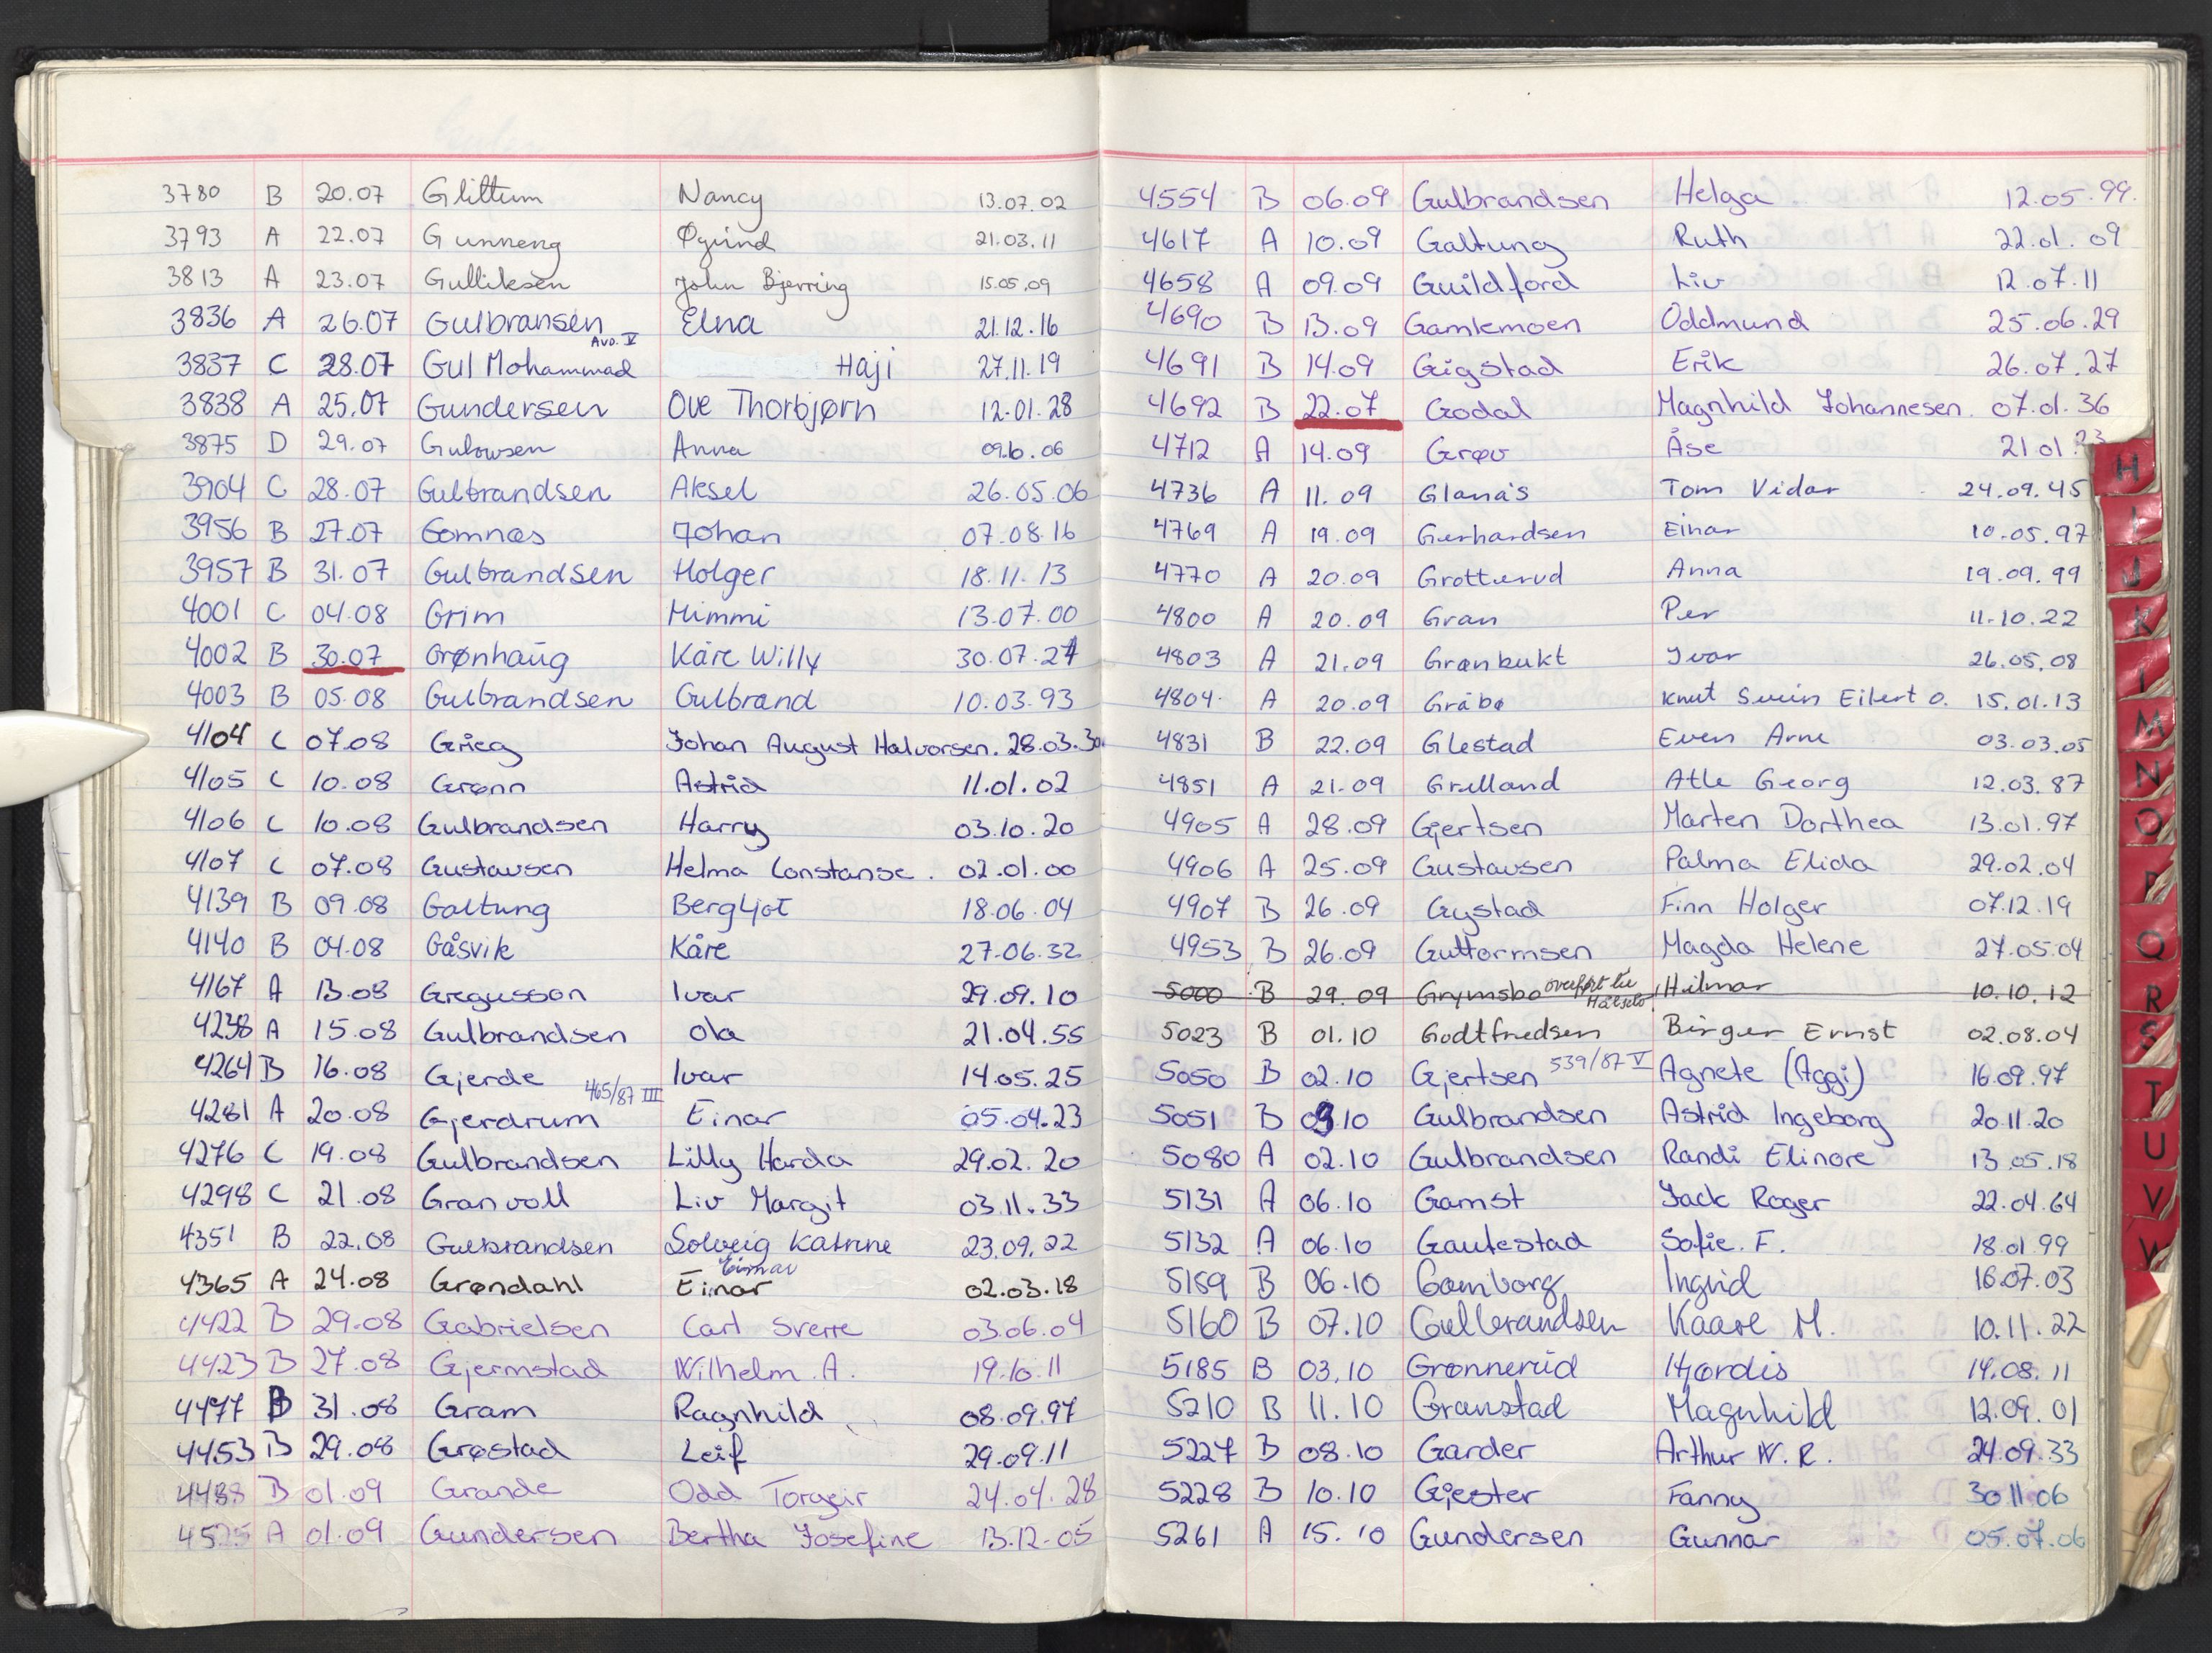 3780 B 20.07 Glittum Nancy 13.07.02
3793 A 22.07 Gunneng Øyvind 21.03.11
3813 A 23.07 Gulliksen John Bjerring 15.05.09
3836 A 26.07 Gulbransen Elna 21.12.16
Avd. V
3837 C 28.07 Gul Mohammad Haji 27.11.19
3838 A 25.07 Gundersen Ove Thorbjørn 12.01.28
3875 D 29.07 Gulowsen Anna 09.10.06
3904 C 28.07 Gulbrandsen Aksel 26.05.06
3956 B 27.07 Gomnæs Johan 07.08.16
3957 B 31.07 Gulbrandsen Holger 18.11.13
4001 C 04.08 Grim Mimmi 13.07.00
4002 B 30.07 Grønhaug Kåre Willy 30.07.27
4003 B 05.08 Gulbrandsen Gulbrand 10.03.93
4104 C 07.08 Grieg Johan August Halvorsen. 28.03.30
4105 C 10.08 Grønn Astrid 11.01.02
4106 C 10.08 Gulbrandsen Harry 03.10.20
4107 C 07.08 Gustavsen Helma Constanse. 02.01.00
4139 B 09.08 Galtung Bergljot 18.06.04
4140 B 04.08 Gåsvik Kåre 27.06.32
4167 A 13.08 Gregusson Ivar 29.09.10
4238 A 15.08 Gulbrandsen Ola 21.04.55
4264 B 16.08 Gjerde Ivar 14.05.25
465/87 III
4281 A 20.08 Gjerdrum Einar 05.04.23
4276 C 19.08 Gulbrandsen Lilly Harda 29.02.20
4298 C 21.08 Granvoll Liv Margit 03.11.33
4351 B 22.08 Gulbrandsen Solveig Katrine 23.09.22
Eimar
4365 A 24.08 Grøndahl Einar 02.03.18
4422 B 29.08 Gabrielsen Carl Sverre 03.06.04
4423 B 27.08 Gjermstad Wilhelm A. 19.10.11
4477 B 31.08 Gram Ragnhild 08.09.97
4453 B 29.08 Grøstad Leif 29.09.11
4488 B 01.09 Grande Odd Torgeir 24.04.28
4525 A 01.09 Gundersen Bertha Josefine 13.12.05
4554 B 06.09 Gulbrandsen Helga 12.05.99.
4617 A 10.09 Galtung Ruth 22.01.09
4658 A 09.09 Guildford Liv 12.07.11
4690 B 13.09 Gamlemoen Oddmund 25.06.29
4691 B 14.09 Gigstad Erik 26.07.27
4692 B 22.07 Godal Magnhild Johannesen. 07.01.36
4712 A 14.09 Grøv Åse 21.01.23
4736 A 11.09 Glanås Tom Vidar 24.09.45
4769 A 19.09 Gerhardsen Einar 10.05.97
4770 A 20.09 Grotterud Anna 19.09.99
4800 A 20.09 Gran Per 11.10.22
4803 A 21.09 Grønbukt Ivar 26.05.08
4804 A 20.09 Gråbø Knut Svein Eilert O. 15.01.13
4831 B 22.09 Glestad Even Arne 03.03.05
4851 A 21.09 Grelland Atle Georg 12.03.87
4905 A 28.09 Gjertsen Marten Dorthea 13.01.97
4906 A 25.09 Gustavsen Palma Elida 29.02.04
4907 B 26.09 Gystad Finn Holger 07.12.19
4953 B 26.09 Guttormsen Magda Helene 27.05.04
5000 B 29.09 Grymsbo overført til Hilmar 10.10.12
5023 B 01.10 Godtfredsen Birger Ernst 02.08.04
5050 B 02.10 Gjertsen 539/87 V Agnete (Aggi) 16.09.97
5051 B 03.10 Gulbrandsen Astrid Ingeborg 20.11.20
5080 A 02.10 Gulbrandsen Randi Elinore 13.05.18
5131 A 06.10 Gamst Jack Roger 22.04.64
5132 A 06.10 Gautestad Sofie. F. 18.01.99
5159 B 06.10 Gamborg Ingrid 16.07.03
5160 B 07.10 Gulbrandsen Kaare M. 10.11.22
5185 B 03.10 Grønnerud Hjørdis 14.08.11
5210 B 11.10 Granstad Magnhild 12.09.01
5227 B 08.10 Garder Arthur W. R. 24.09.33
5228 B 10.10 Gjester Fanny 30.11.06
5261 A 15.10 Gundersen Gunnar 05.07.06
H
I
J
K
M
N
O
P
Q
R
S
T
U
V